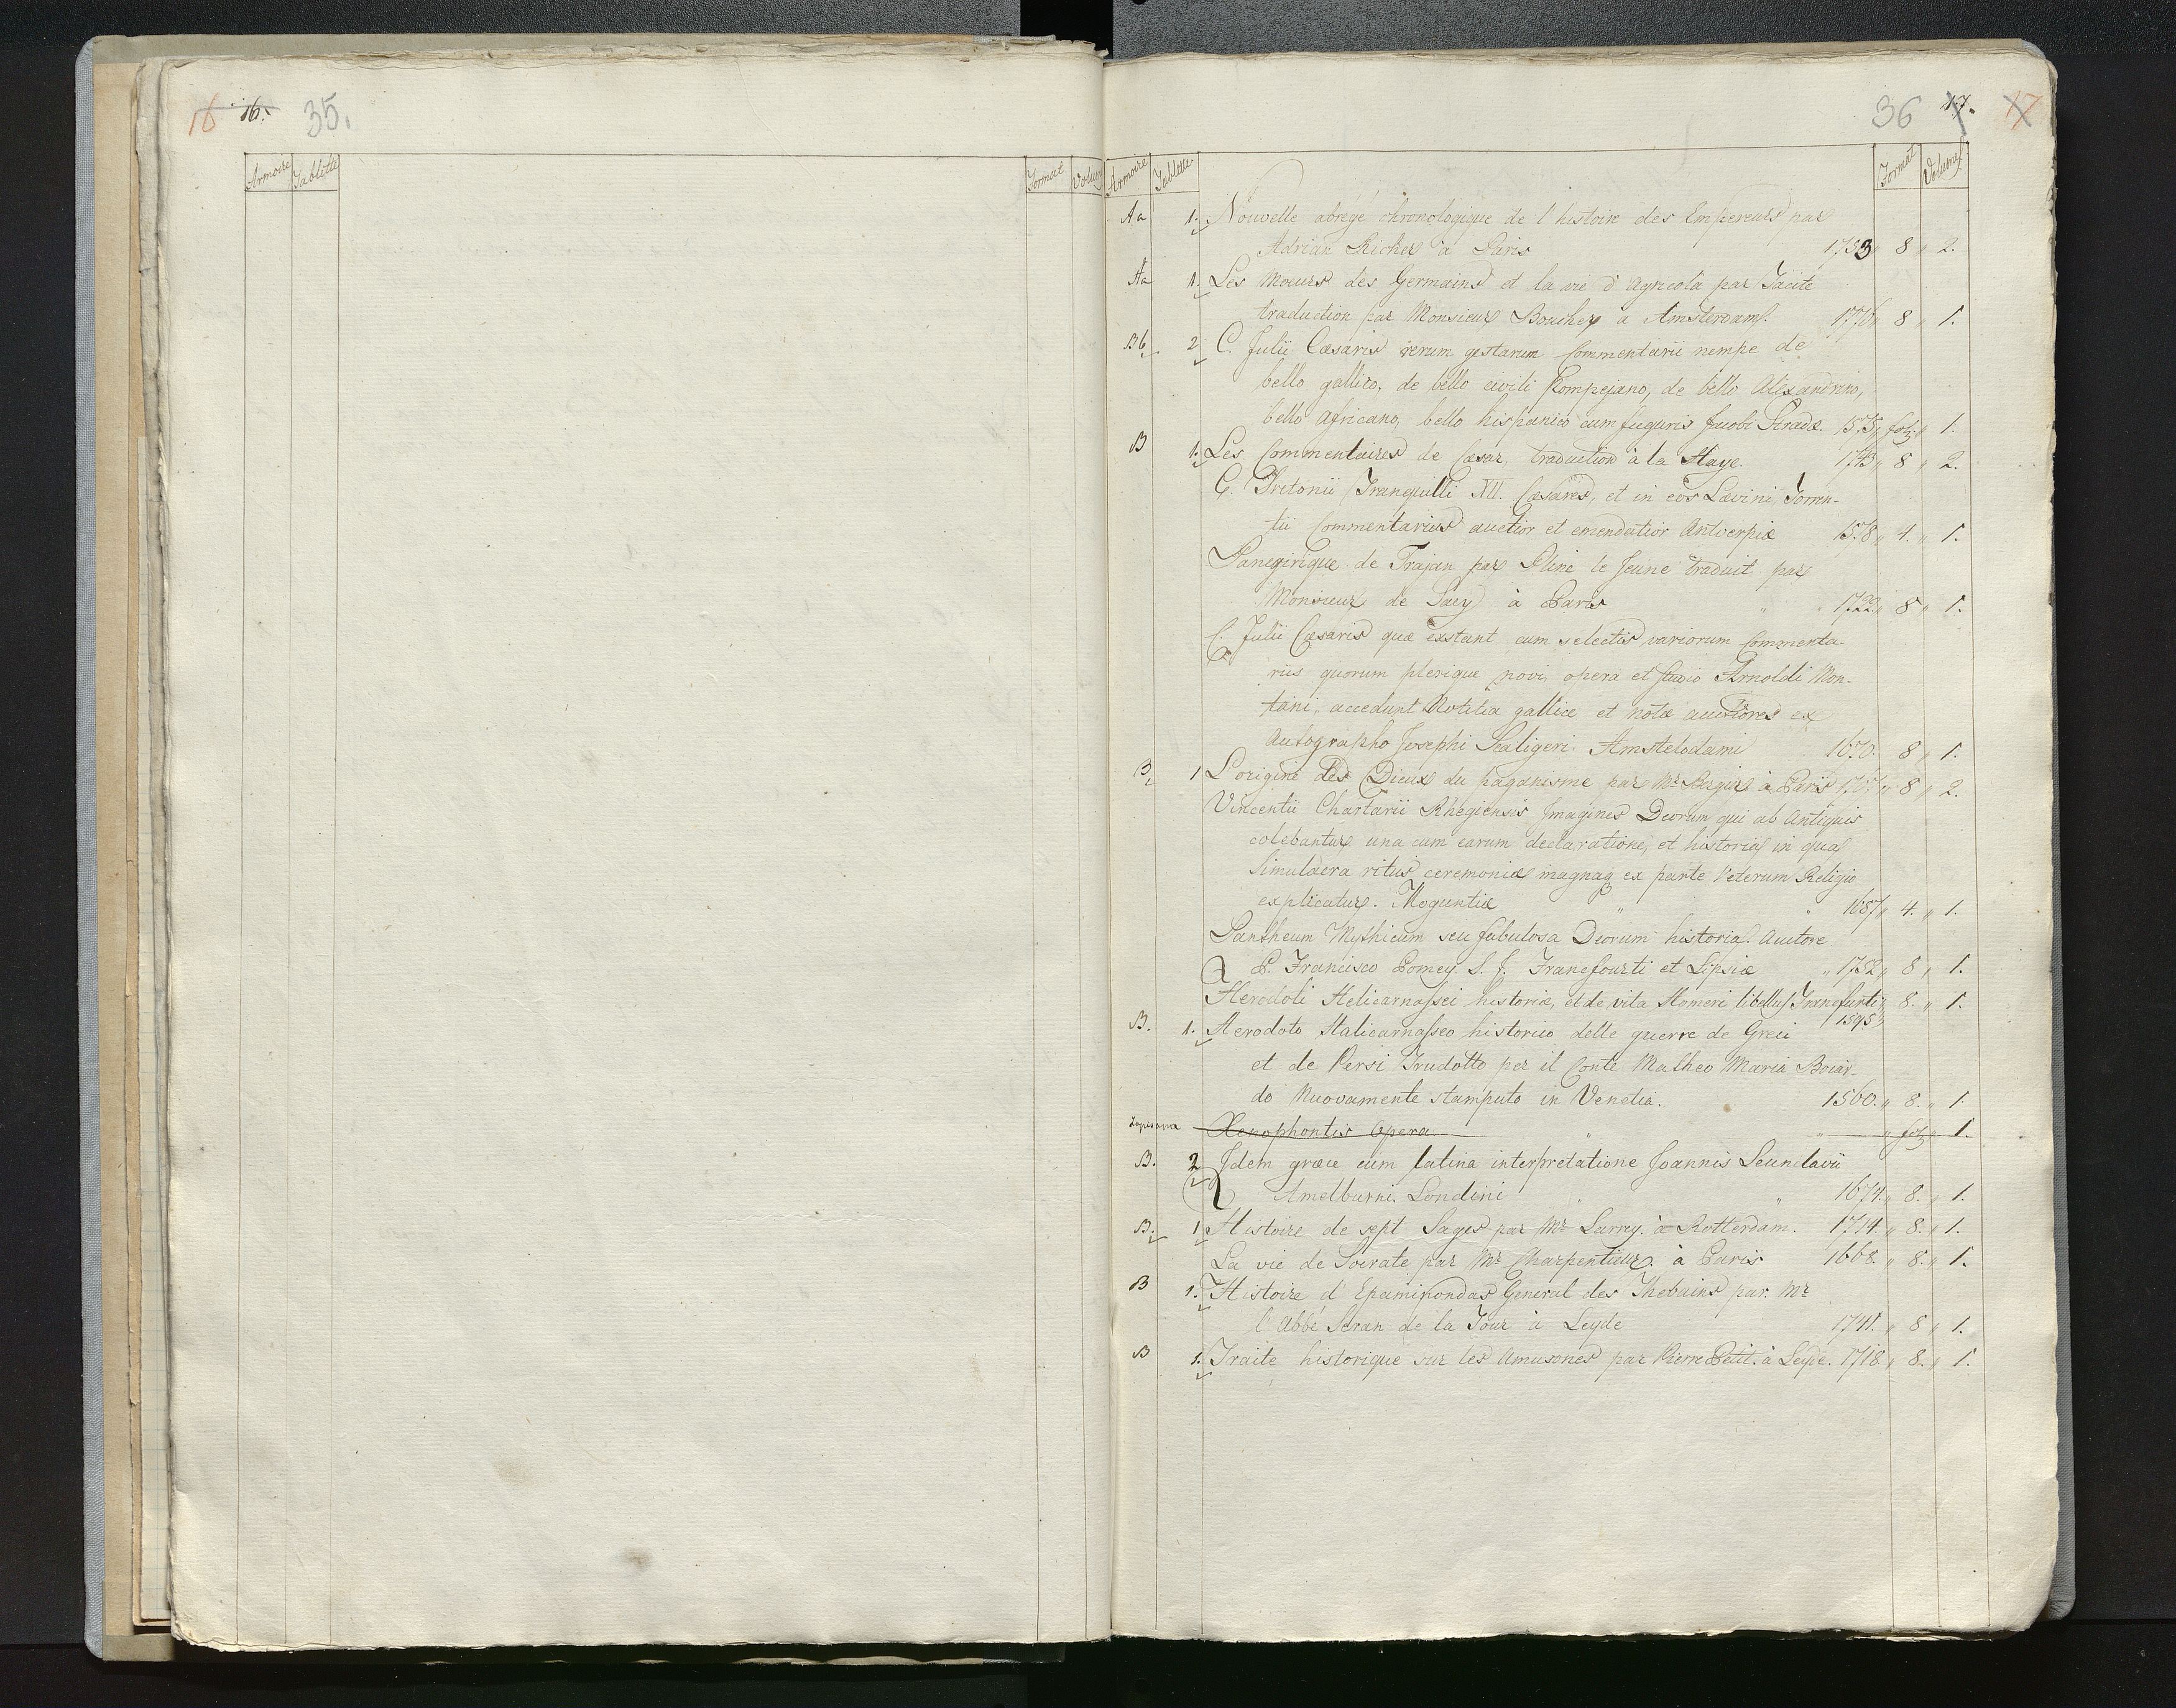 16 16. 35.
Armoire Tablette Format Volum
36 17. 17
Armoire Tablette Format Volumes
Aa 1. Nouvelle abregé chronologique de l'histoire des Empereurs par
Adrian Richer à Paris 1753 8 2.
Aa 1. Les Moeurs des Germains et la vie d'Agricola par Tacite
traduction par Monsieur Boucher a Amsterdam. 1776 8 1.
Bb 2 C. Julii Cæsaris rerum gestarum Commentarii nempe de
bello gallico, de bello civili Pompejano, de bello Alexandrino,
bello Africano, bello hispanico cum figuris Jacobi Stradæ. 1575 fol. 1.
B 1. Les Commentaires de Cæsar, traduction à la Haye. 1743 8 2.
Tranquilli XII. Cæsares, et in eos Lævini Torren-
tii Commentarius auctior et emendatior Antverpiæ 1578 4. 1.
Panegirique de Trajan par Pline le Jeune traduit par
Monsieur de Sacy à Paris 1722 8 1.
C. Julii Cæsaris quæ exstant cum selectis variorum Commenta-
riis quorum plerique novi, opera et studio Arnoldi Mon-
tani, accedunt Notitia galliæ et notæ auctiores ex
Autographo Josephi Scaligeri Amstelodami 1670. 8 1.
B 1 L'origine des Dieux du paganisme par Mr Bergier à Paris 1767 8 2.
Vincentii Chartarii Rhegiensis Imagines Deorum qui ab Antiquis
colebantur una cum earum declaratione, et historia in qua
Simulacra ritus ceremoniæ magnaq ex parte Veterum Religio
explicatur. Moguntiæ 1687 4. 1.
Pantheum Mythicum seu fabulosa Deorum historia. Auctore
P. Francisco Pomey S. J. Francfourti et Lipsiæ 1752 8 1.
Herodoti Helicarnassei historiæ, et de vita Homeri libellus Francfurti 8. 1.
1595
B. 1. Herodoto Halicarnasseo historico delle guerre de Greci
et de Persi Trudotto per il Conte Matheo Maria Boiar-
do Nuovamente stamputo in Venetia. 1560. 8. 1.
Xenophontis Opera fol. 1.
B. 2 Idem græce cum latina interpretatione Joannis Leunclavii
Amelburni. Londini 1674. 8. 1.
B. 1 Histoire de sept Sages par Mr Larrey. à Rotterdam. 1714. 8. 1.
La vie de Socrate par Mr Charpentier. à Paris 1668. 8. 1.
B 1. Histoire d'Epaminondas General des Thebains par. Mr
l'Abbé Seran de la Tour à Leyde 1741. 8 1.
B 1. Traité historique sur les Amasones par Pierre Petit. à Leyde. 1718 8. 1.